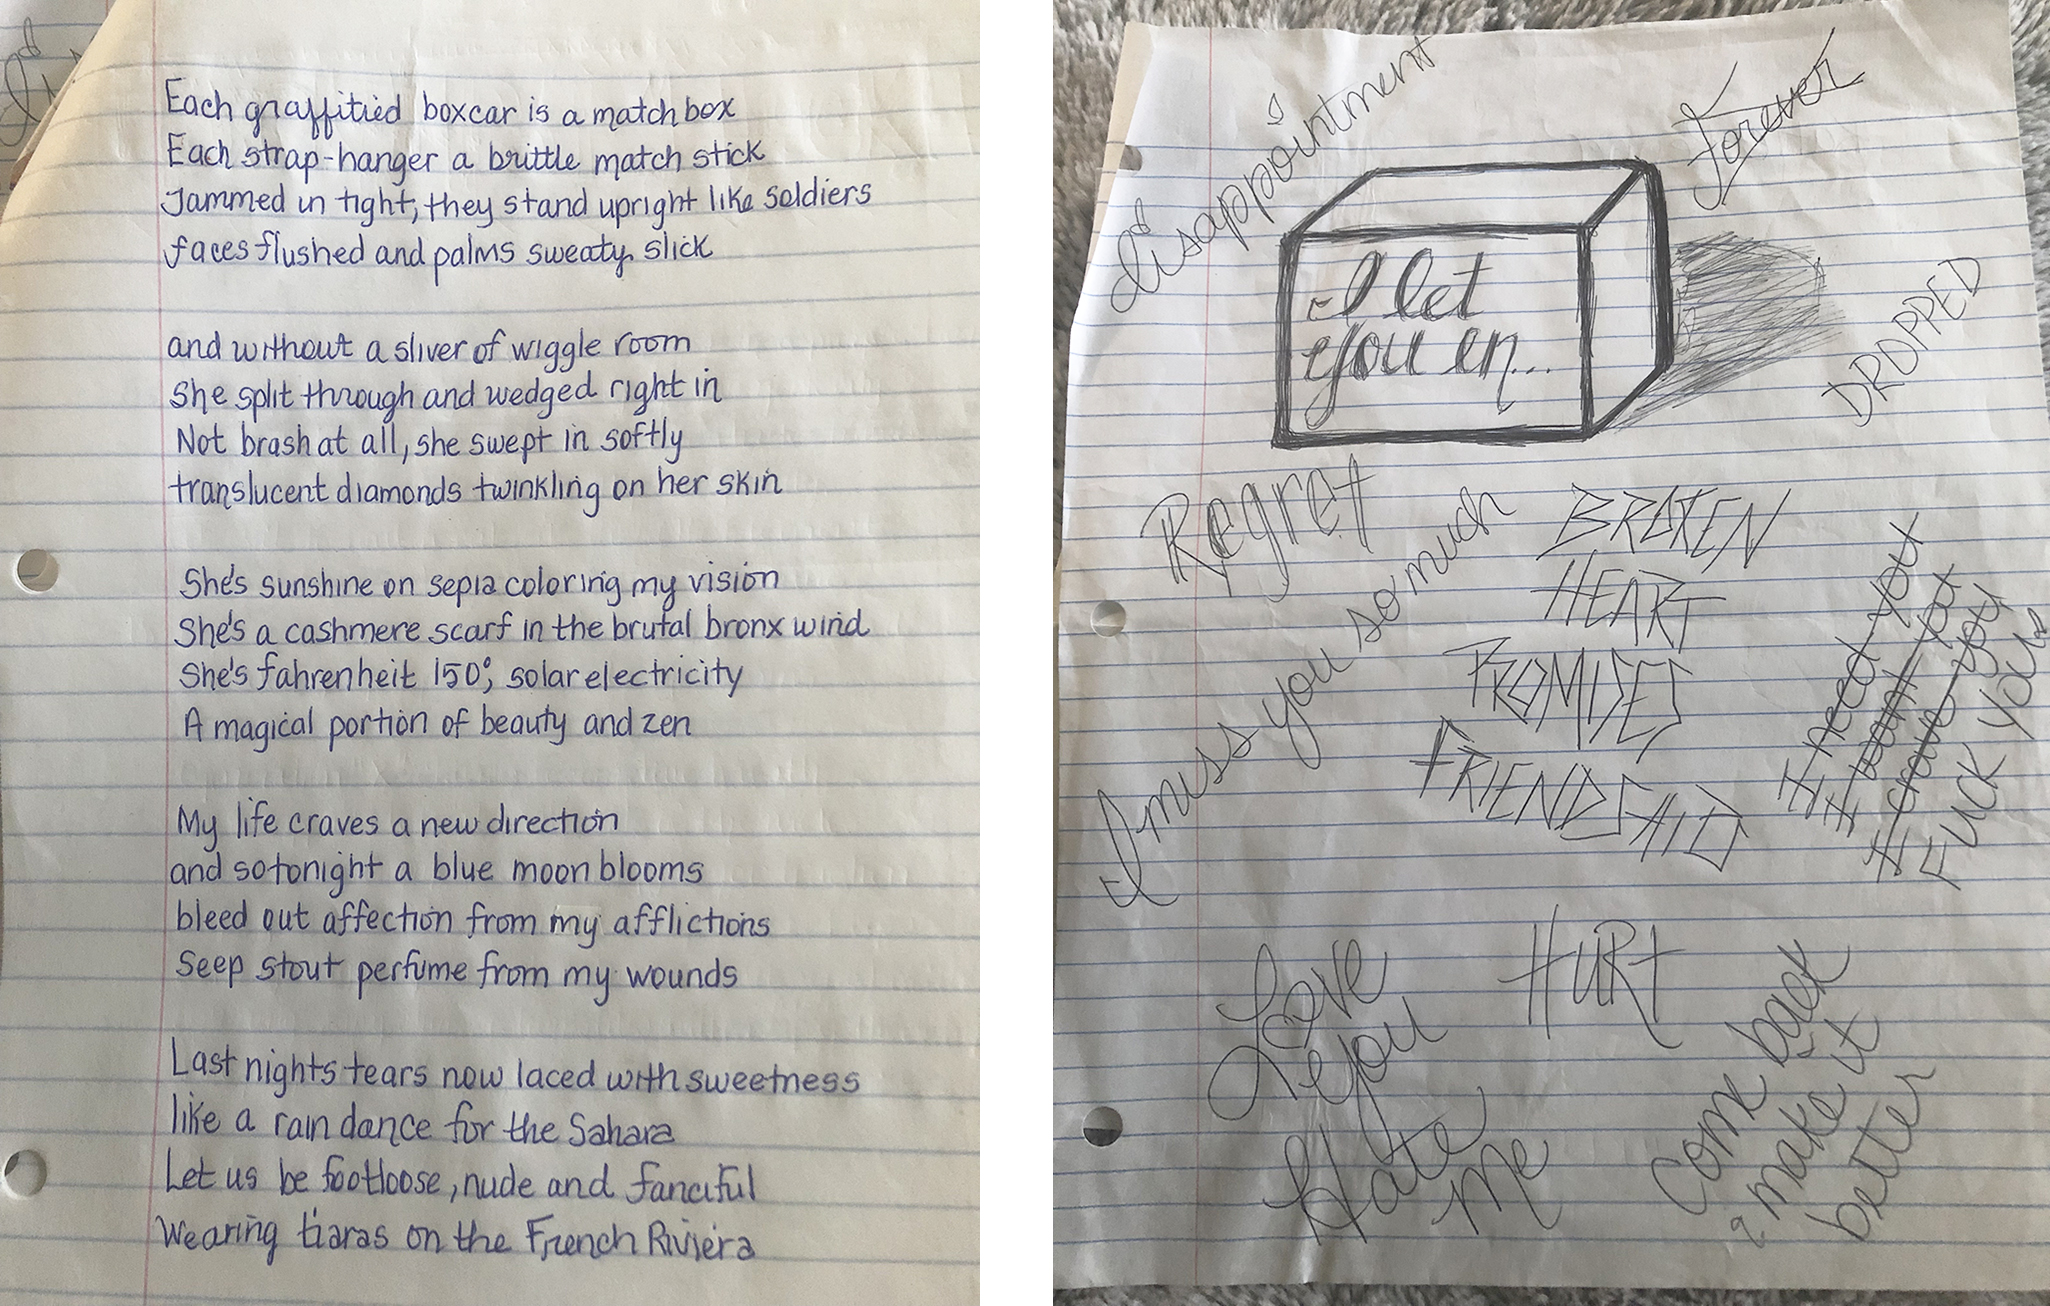 Each graffitied boxcar is a match box
Each strap-hanger a brittle match stick
Jammed in tight; they stand upright like soldiers
faces flushed and palms sweaty slick
and without a sliver of wiggle room
She split through and wedged right in
Not brash at all, she swept in softly
translucent diamonds twinkling on her skin
She's sunshine on sepia coloring my vision
She's a cashmere scarf in the brutal bronx wind
She's fahrenheit 150°, solar electricity
A magical portion of beauty and zen
My life craves a new direction
and so tonight a blue moon blooms
bleed out affection from my afflictions
Seep stout perfume from my wounds
Last nights tears now laced with sweetness
like a rain dance for the Sahara
Let us be footloose, nude and fanciful
Wearing tiaras on the French Riviera
disappointment
Forever
I let
you in...
DROPPED
Regret
I miss you so much
BROKEN
HEART
PROMISES
FRIENDSHIP
I need you
I want you
I crave you
FUCK YOU
Love
you
Hate
Me
HURT
Come back
& make it
better